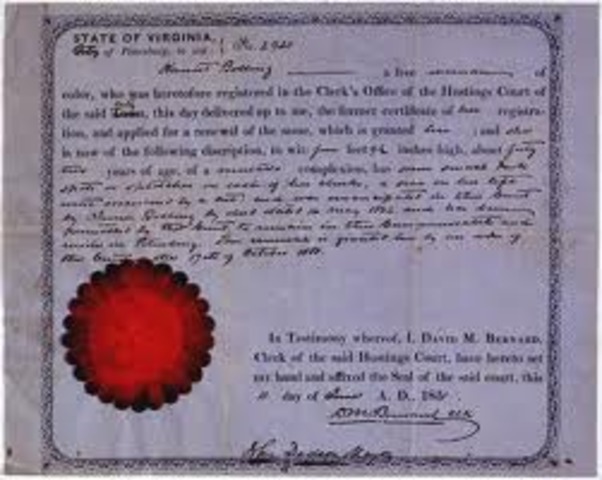 STATE OF VIRGINIA,
City of Petersburg, to wit: No.
Harriet Bolling a free woman of
color, who was heretofore registered in the Clerk's Office of the Hustings Court of
the said this day delivered up to me, the former certificate of her registra-
tion, and applied for a renewal of the same, which is granted her ; and she
is now of the following discription, to wit: four feet inches high, about forty
two years of age, of a complexion, has some small dark
spots or splotches on each of her cheeks, a scar on her left
and was emancipated in this Court
by James Bolling by deed dated in May and has been
permitted by this Court to remain in this Commonwealth and
reside in Petersburg. renewal is granted her by an order of
this Court, 17th of October
In Testimony whereof, I, DAVID M. BERNARD,
Clerk of the said Hustings Court, have hereto set
my hand and affixed the Seal of the said court, this
day of June A. D., 185
D M Bernard
Mayor